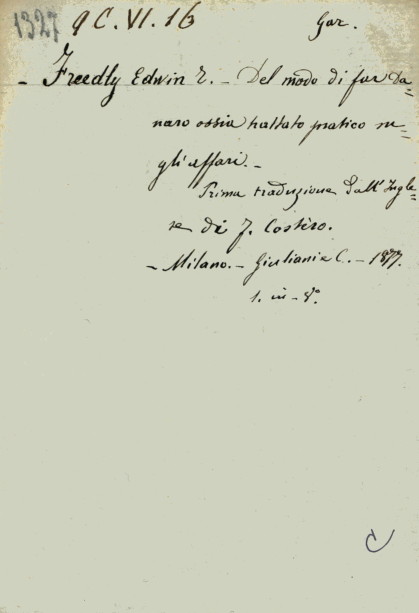 1327 9 C. VI. 16 Gar.
- Freedly Edwin T. - Del modo di far da=
naro ossia trattato pratico su=
gli affari. -
Prima traduzione dall' Ingle=
se di F. Costèro.
- Milano. - Giuliani e C. - 1877.
1. in - 8°.
C